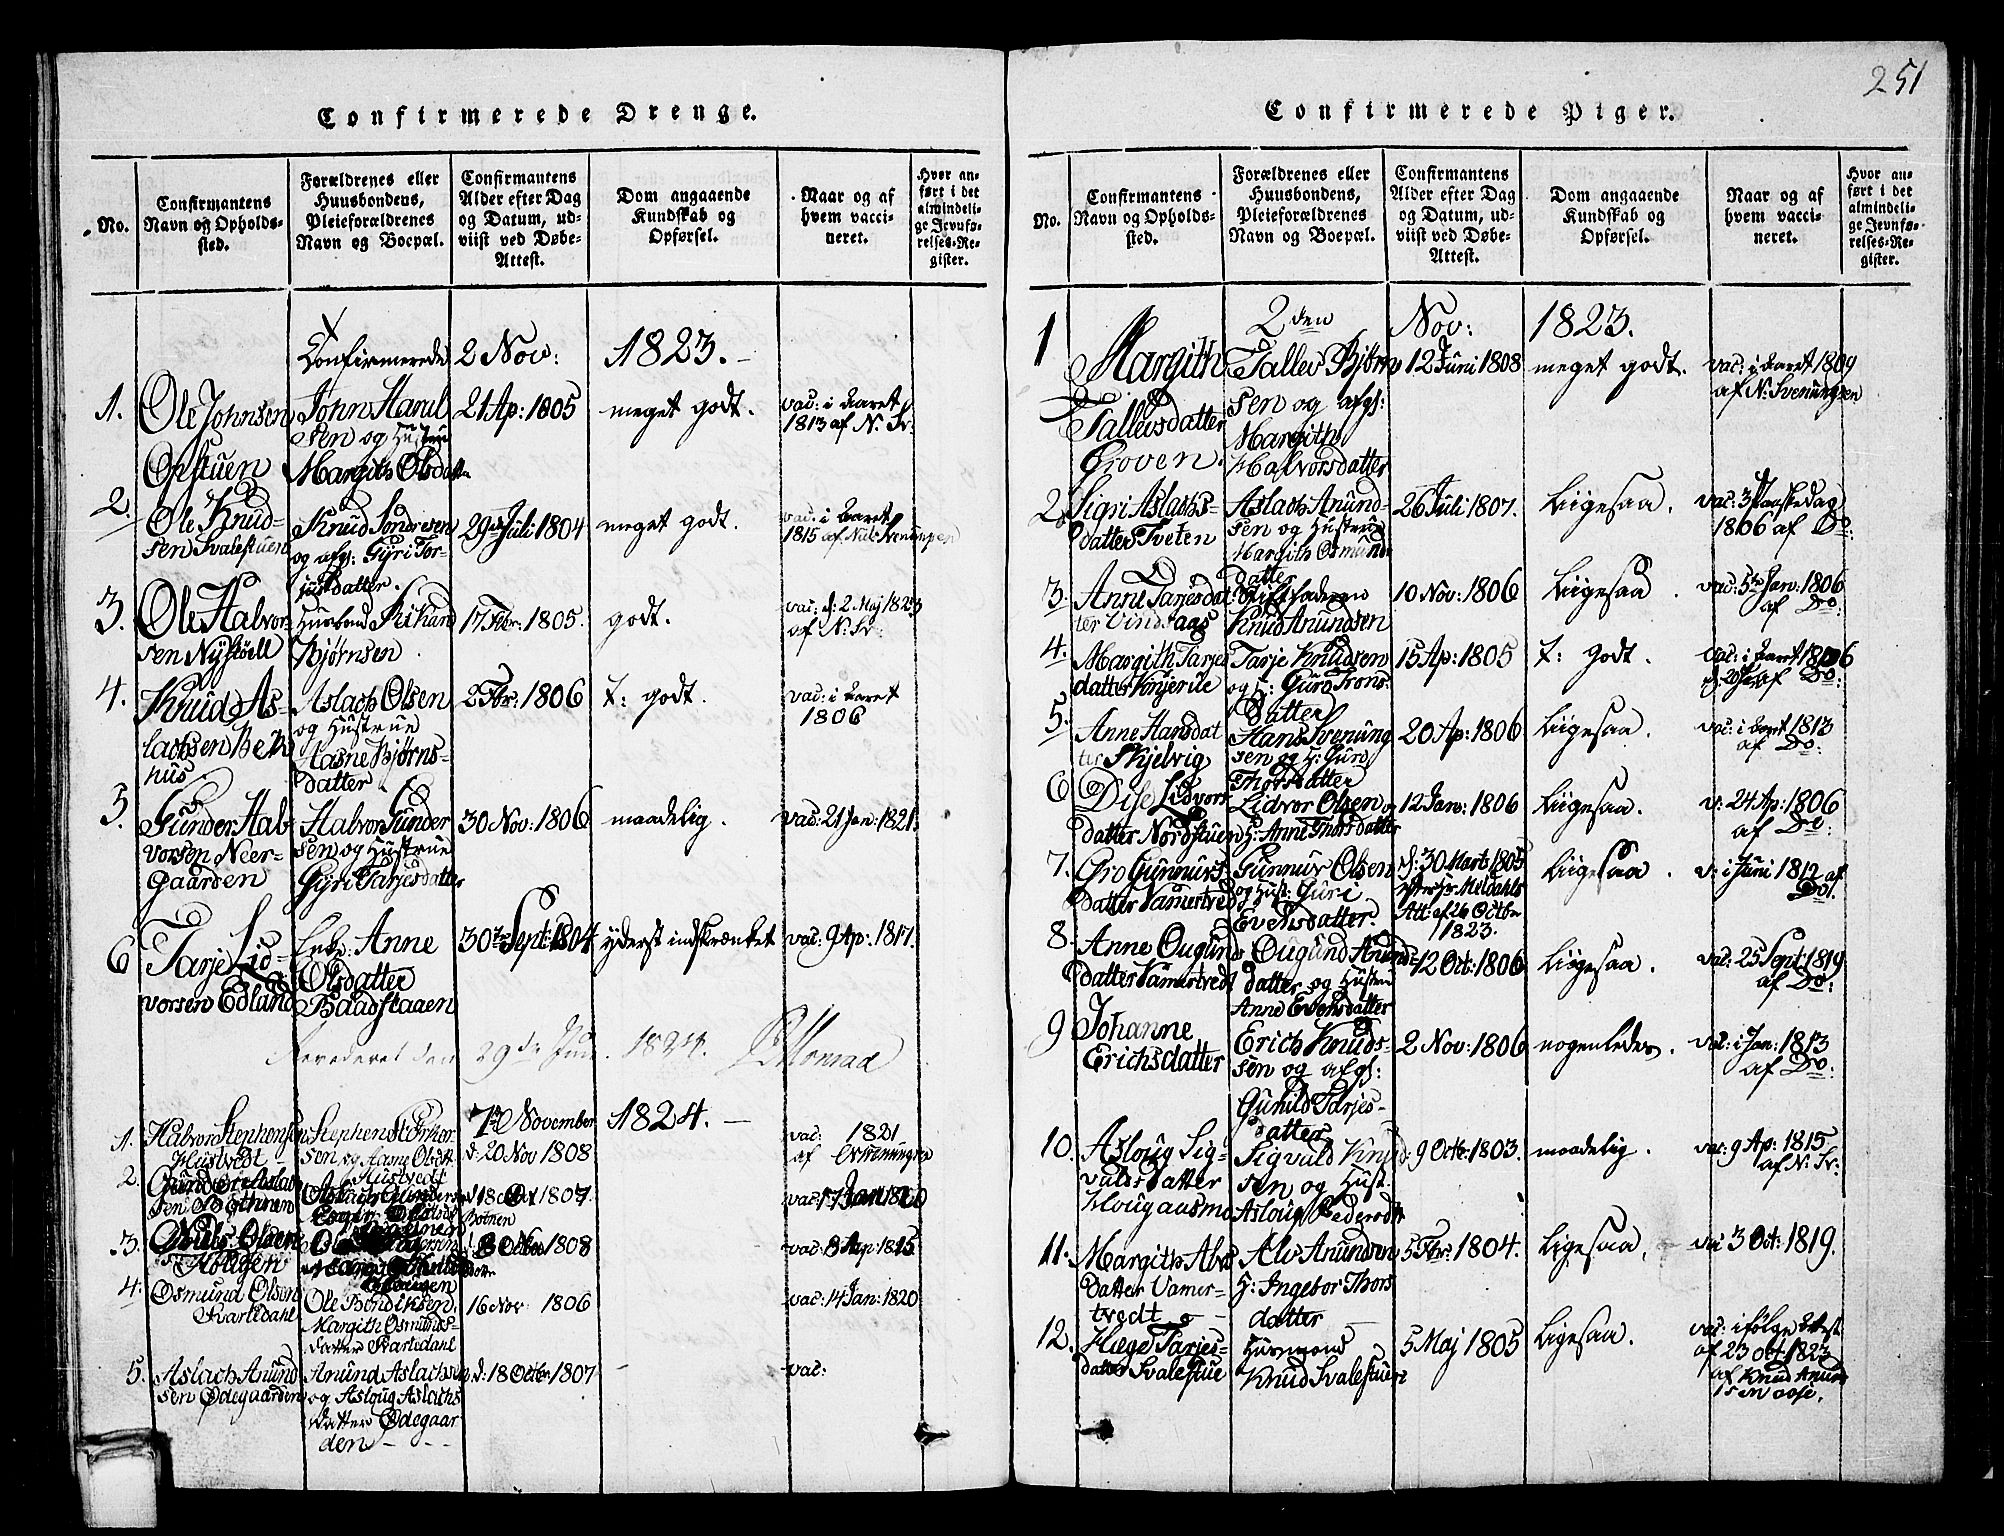 251
Confirmerede Drenge.
No.
Confirmantens
Navn og Opholds-
sted.
Forældrenes eller
Huusbondens,
Pleieforældrenes
Navn og Boepæl.
Confirmantens
Alder efter Dag
og Datum, ud-
viist ved Døbe-
Attest.
Dom angaaende
Kundskab og
Opførsel.
Naar og af
hvem vacci-
neret.
Hvor an-
ført i det
almindeli-
ge Jevnfø-
relses-Re-
gister.
Confirmerede 2 Nov: 1823.
1.
Ole Johnsen
Opstuen
John Harul
sen og Hustrue
Margith Olsdatter
21 Ap: 1805
meget godt.
vac: i Aaret
1813 af N: Sv:
2.
Ole Knud-
sen Svalestuen
Knud Sondresen
og afg: Gyri Tor-
jusdatter.
29de Juli 1804
meget godt.
vac: i Aaret
1815 af
3.
Ole Halvor-
sen Nystøell
Husbond Rikard
Bjørnsen
17 Febr: 1805.
godt.
vac: d: 2 Maj 1823
af N: Sv:
4.
Knud As-
lachsen Bek
hus
Aslach Olsen
og Hustrue
Aasne Bjørns-
datter.
2 Fbr: 1806
t: godt.
vac: i Aaret
1806
5.
Gunder Hal-
vorsen Neer-
gaarden
Halvor Gunder
sen og Hustrue
Gyri Tarjesdatter
30 Nov: 1806
maadelig.
vac: 21 Jan: 1821.
6
Tarje Lid-
vorsen Edland
Enke: Anne
Olsdatter
Baadstaaen
30te Sept: 1804
yderst indskrænket
vac: 9 Ap: 1817.
Revideret den 29de Juni 1824. Monrad
7de November 1824.
1.
Halvor Stephensen
Hustvedt
Stephen
sen og Aasne Olsdtr
Hustvedt
d: 20 Nov 1808
vac: 1821
af
2.
sen Bothnen
Aslach Gunders
Botnen
d 18 Oct 1807.
vac: 17 Jan 1820
3.
Niels Olsen
Hougen
Hougen
1808
vac: 8 Ap: 1815
4.
Osmund Olsen
Qvarledahl
Ole Bendiksen.
Margith Osmunds-
datter Qvarledahl
16 Nov 1806
vac: 14 Jan: 1820
5.
Aslach Anund
sen Ødegaarden
Anund Aslachsen
og Asloug Aslachs
datter Ødegaar
den
d: 18 Octbr 1807
vac:
Confirmerede Piger.
No.
Confirmantens
Navn og Opholds-
sted.
Forældrenes eller
Huusbondens,
Pleieforældrenes
Navn og Boepæl.
Confirmantens
Alder efter Dag
og Datum, ud-
viist ved Døbe-
Attest.
Dom angaaende
Kundskab og
Opførsel.
Naar og af
hvem vacci-
neret.
Hvor an-
ført i det
almindeli-
ge Jevnfø-
relses-Re-
gister.
2den Nov: 1823.
1
Margith
Tallevsdatter
Groven.
Tallev Bjørn
sen og afg:
Margith
Halvorsdatter
12 Juni 1808
meget godt.
vac: i Aaret 1809
af N: Svenungsen
2
Sigri Aslachs-
datter Tveten
Aslach Anund-
sen og Hustrue
Margith Osmunds
datter
26 Juli 1807.
Ligesaa.
vac: 3 Paaskedag
1806 af Do:
3.
Anne Tarjesdat-
ter Vindsaas
Stiffaderen
Knud Anundsen
10 Nov: 1806
Ligesaa.
vac: 5te Jan: 1806
af Do:
4.
Margith Tarjes
datter
Tarje Knudsen
og H: Guro Trons-
datter
15 Ap: 1805
t: godt.
vac: i Aaret 1806
af Do:
5.
Anne Hansdat
ter Skjelvig
Hans Svenung
sen og H: Guro
Thorsdatter
20 Ap: 1806
Ligesaa.
vac: i Aaret 1813
af Do:
6
Dise Lidvors
datter Nordstuen
Lidvor Olsen
H: Anne Thorsdatter
12 Jan: 1806
Ligesaa.
v: 24 Ap: 1806
af Do:
7.
Gro Gunnurs-
datter Vamertved
Gunnur Olsen
og Hust: Guri
Evensdatter.
d: 30 Marts 1805
efter Hr Meldahls
Att: af 26 Octbr
1823.
Ligesaa.
v: i Juni 1812 af
Do.
8.
Anne Ougunds
datter Vamertvedt
Ougund Anund-
datter og Hustru
Anne Evensdatter
12 Oct: 1806
Ligesaa.
vac: 25 Sept 1819
af Do:
9
Johanne
Erichsdatter
Erich Knuds-
sen og afg:
Gunild Tarjes-
datter
2 Nov: 1806
nogenledes.
vac: i Jan: 1813
af Do:
10.
Asloug Sig-
valdsdatter
Hougaasmo
Sigvald Knud-
sen og Hust.
Asloug Pedersdtr
9 Octbr: 1803.
maadelig.
vac: 9 Ap: 1815
af N: Sv:
11.
Margith Alvs
datter Vamer-
tvedt
Alv Anundsen
H: Ingebor Thors
datter
5 Fbr: 1804.
Ligesaa.
vac 3 Oct: 1819.
12.
Hæge Tarjes-
datter Svalestue
Huusmand
Knud Svalestuen
5 Maj 1805
Ligesaa.
vac: ifølge Attest
af 23 Oct 1823
af Knud Anund
sen